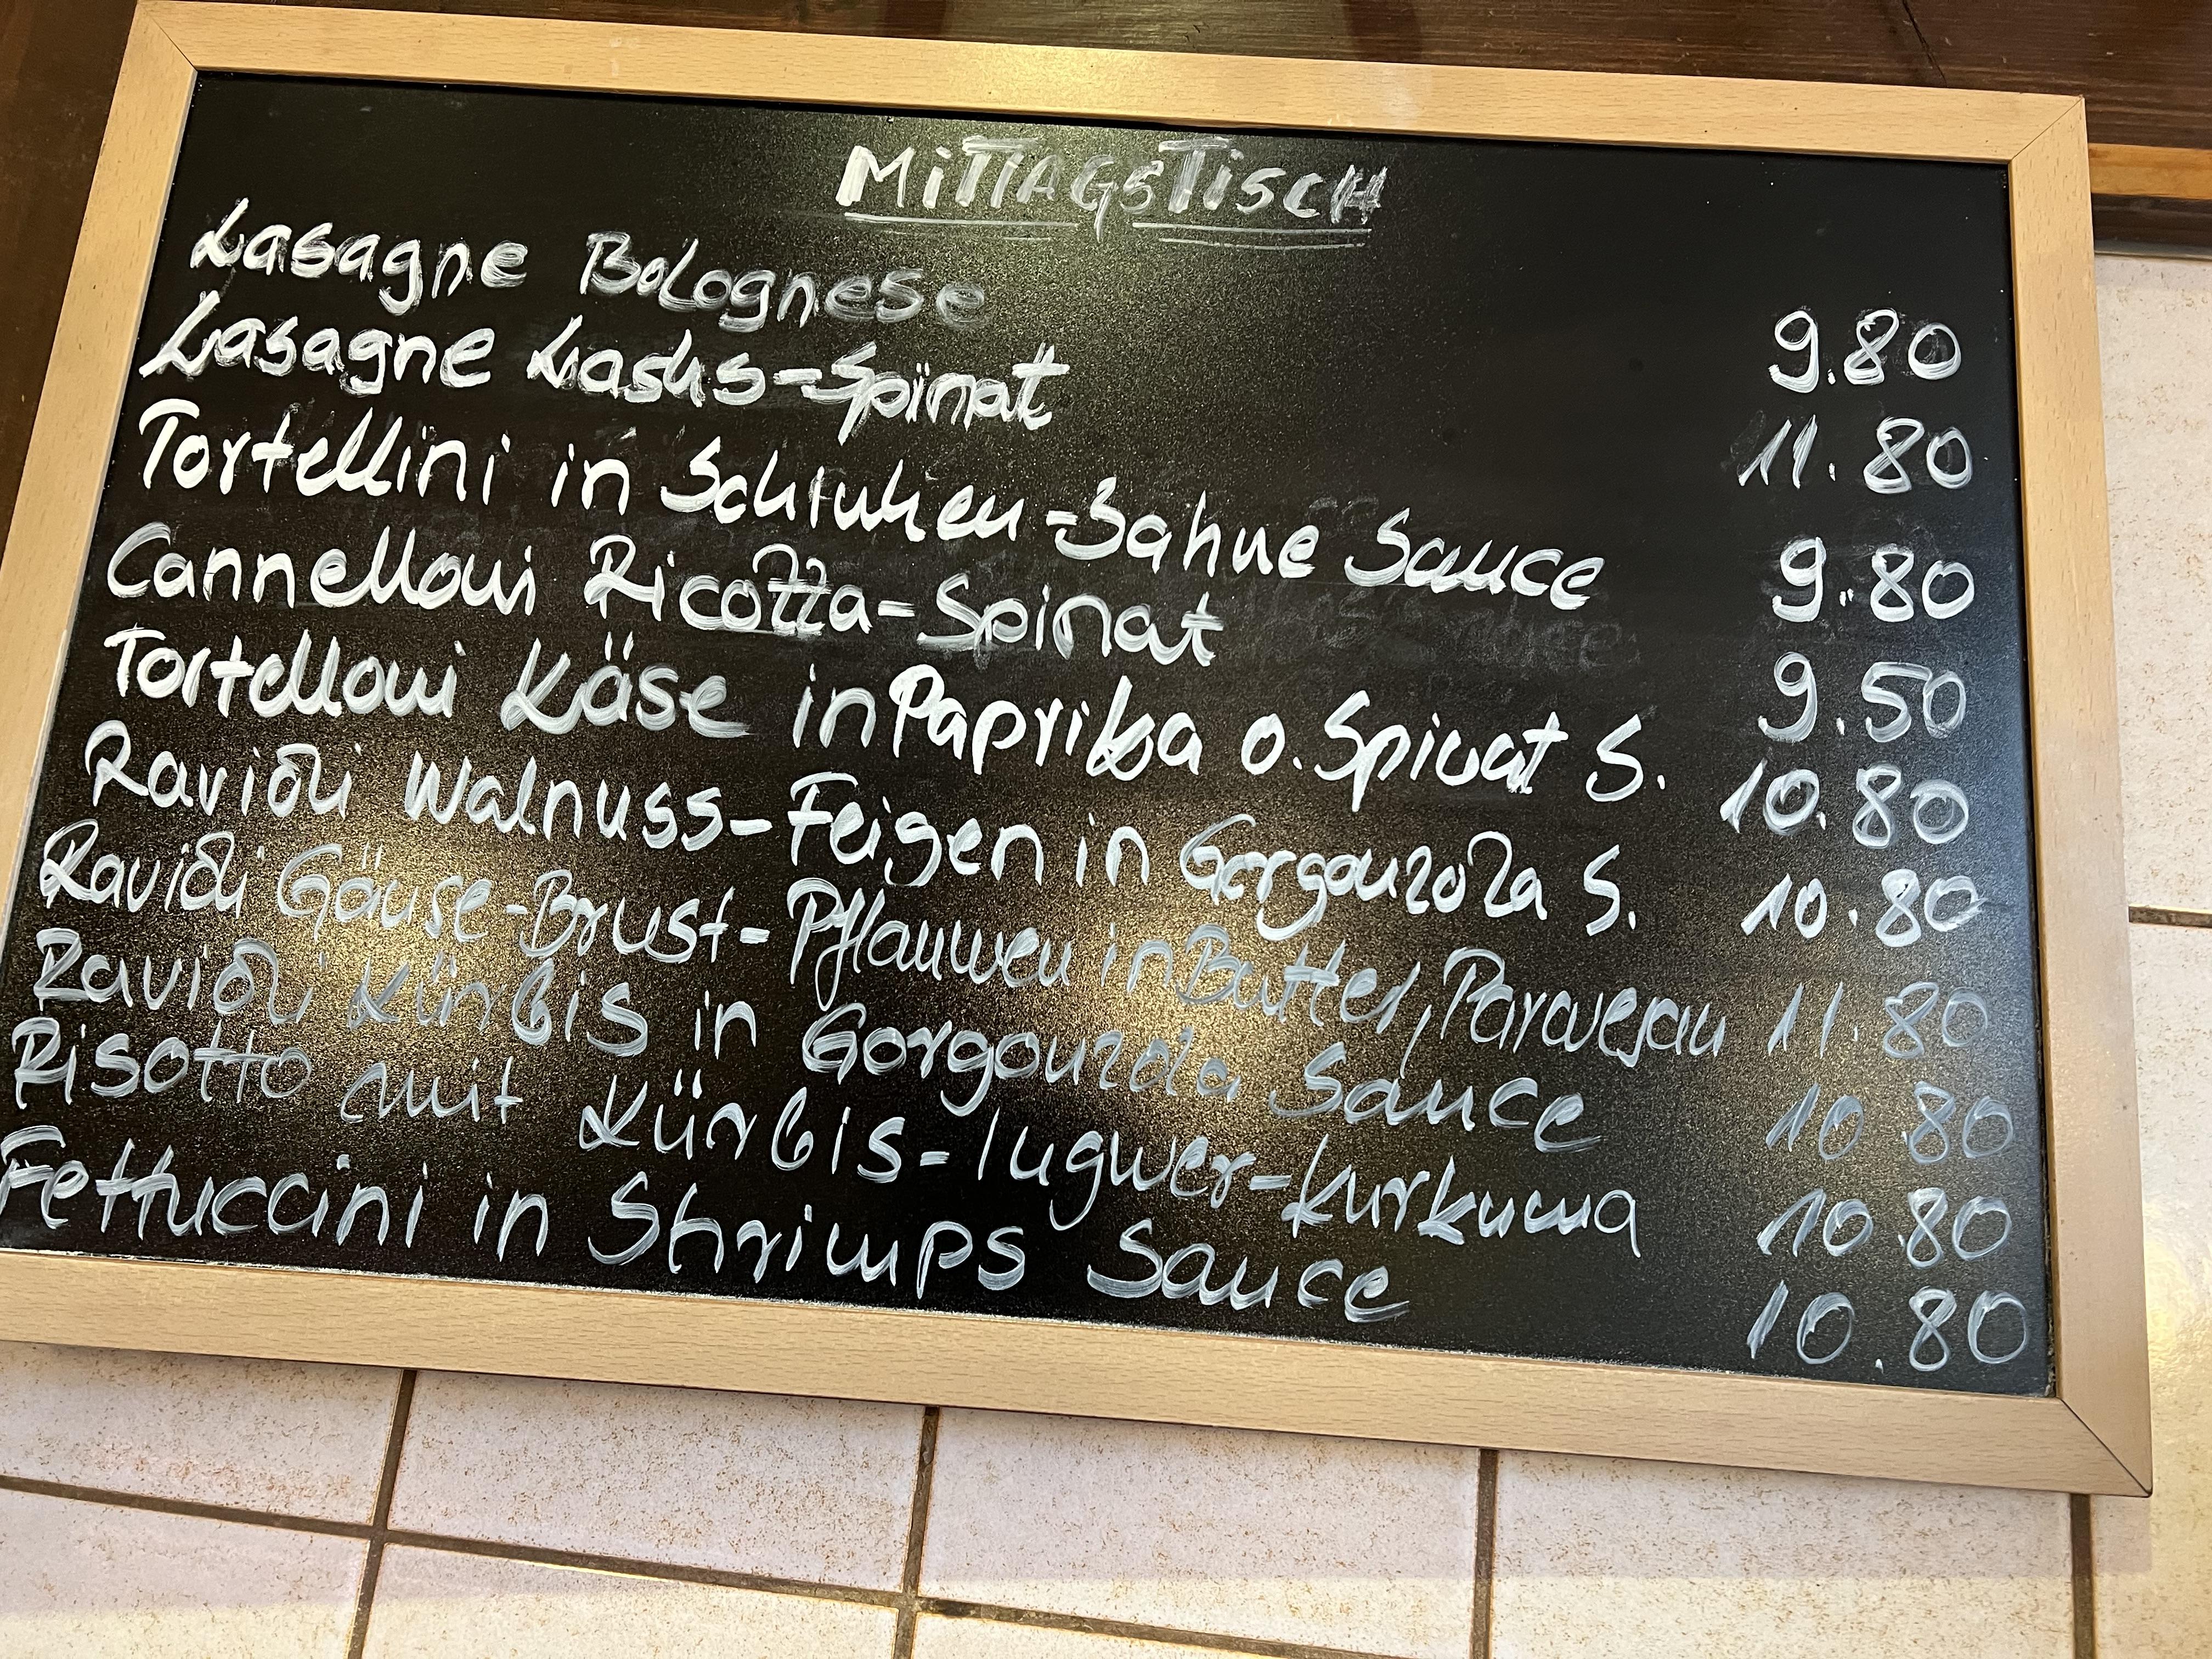 MITTAGSTISCH
Lasagne Bolognese 9.80
Lasagne Lachs-Spinat 11.80
Tortellini in Schinken-Sahne Sauce 9.80
Cannelloni Ricotta-Spinat 9.50
Tortelloni Käse in Paprika o. Spinat S. 10.80
Ravioli Walnuss-Feigen in Gorgonzola S. 10.80
Ravioli Gänse-Brust-Pflaumen in Butter, Parmesan 11.80
Ravioli Kürbis in Gorgonzola Sauce 10.80
Risotto mit Kürbis-Ingwer-Kurkuma 10.80
Fettuccini in Shrimps Sauce 10.80